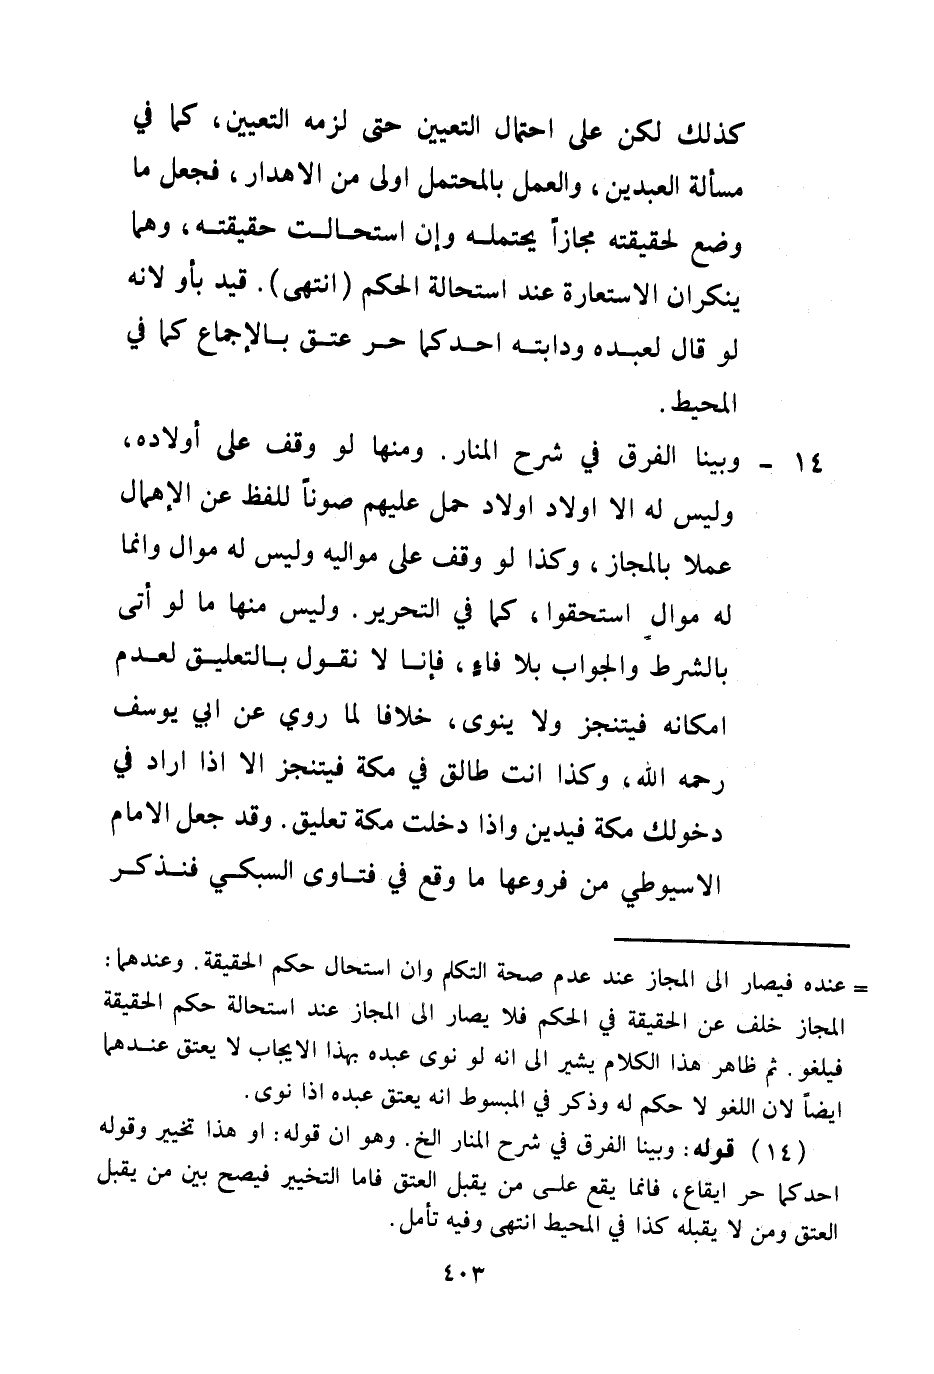 كذلك لكن على احتمال التعيين حتى لزمه التعيين، كما في
مسألة العبدين، والعمل بالمحتمل اولى من الاهدار، فجعل ما
وضع لحقيقته مجازاً يحتمله وإن استحالت حقيقته، وهما
ينكران الاستعارة عند استحالة الحكم (انتهى). قيد بأو لانه
لو قال لعبده ودابته احدكما حر عتق بالإجماع كما في
المحيط.
١٤ - وبينا الفرق في شرح المنار. ومنها لو وقف على أولاده،
وليس له الا اولاد اولاد حمل عليهم صوناً للفظ عن الإهمال
عملا بالمجاز، وكذا لو وقف على مواليه وليس له موال وانما
له موال استحقوا، كما في التحرير. وليس منها ما لو أتى
بالشرط والجواب بلا فاء، فإنا لا نقول بالتعليق لعدم
امكانه فيتنجز ولا ينوى، خلافا لما روي عن ابي يوسف
رحمه الله، وكذا انت طالق في مكة فيتنجز الا اذا اراد في
دخولك مكة فيدين واذا دخلت مكة تعليق. وقد جعل الامام
الاسيوطي من فروعها ما وقع في فتاوى السبكي فنذكر
= عنده فيصار الى المجاز عند عدم صحة التكلم وان استحال حكم الحقيقة. وعندهما:
المجاز خلف عن الحقيقة في الحكم فلا يصار الى المجاز عند استحالة حكم الحقيقة
فيلغو. ثم ظاهر هذا الكلام يشير الى انه لو نوى عبده بهذا الايجاب لا يعتق عندهما
ايضاً لان اللغو لا حكم له وذكر في المبسوط انه يعتق عبده اذا نوى.
(١٤) قوله: وبينا الفرق في شرح المنار الخ. وهو ان قوله: او هذا تخيير وقوله
احدكما حر ايقاع، فانما يقع على من يقبل العتق فاما التخيير فيصح بين من يقبل
العتق ومن لا يقبله كذا في المحيط انتهى وفيه تأمل.
٤٠٣